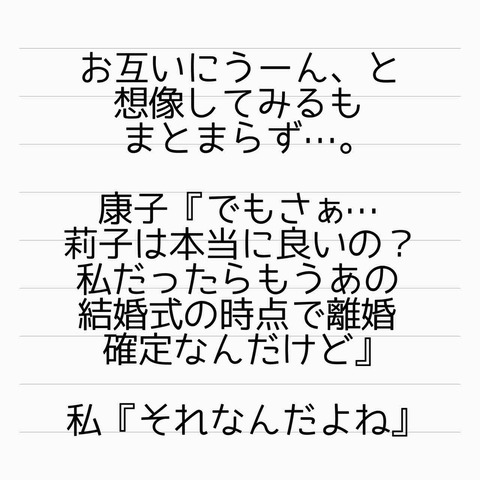 お互いにうーん、と
想像してみるも
まとまらず…。
康子『でもさぁ…
莉子は本当に良いの？
私だったらもうあの
結婚式の時点で離婚
確定なんだけど』
私『それなんだよね』